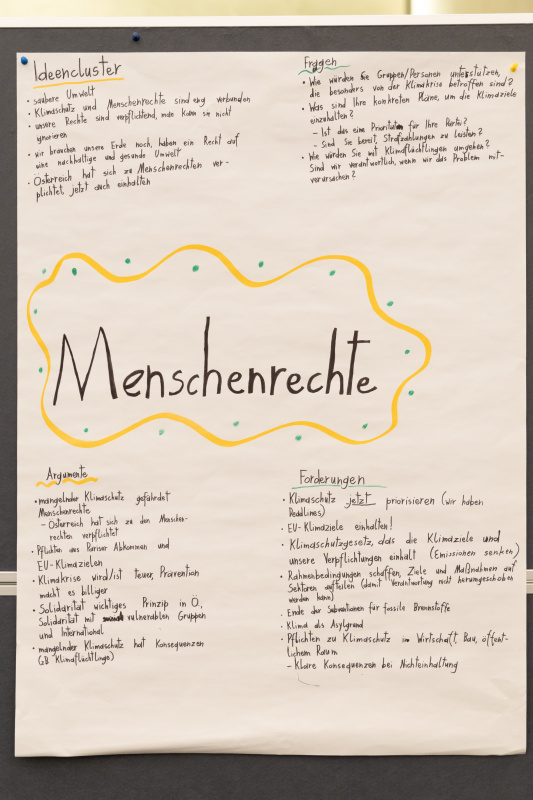 Ideencluster
• saubere Umwelt
• Klimaschutz und Menschenrechte sind eng verbunden
• unsere Rechte sind verpflichtend, man kann sie nicht
ignorieren
• wir brauchen unsere Erde noch, haben ein Recht auf
eine nachhaltige und gesunde Umwelt
• Österreich hat sich zu Menschenrechten ver-
plichtet, jetzt auch einhalten
Fragen
• Wie würden Sie Gruppen/Personen unterstützen,
die besonders von der Klimakrise betroffen sind?
• Was sind Ihre konkreten Pläne, um die Klimaziele
einzuhalten?
- Ist das eine Priorität für Ihre Partei?
- Sind Sie bereit, Strafzahlungen zu leisten?
• Wie würden Sie mit Klimaflüchtlingen umgehen?
Sind wir verantwortlich, wenn wir das Problem mit-
verursachen?
Menschenrechte
Argumente
• mangelnder Klimaschutz gefährdet
Menschenrechte
- Österreich hat sich zu den Menschen-
rechten verpflichtet
• Pflichten aus Pariser Abkommen und
EU-Klimazielen
• Klimakrise wird/ist teuer, Prävention
macht es billiger
• Solidarität wichtiges Prinzip in Ö.,
Solidarität mit vulnerablen Gruppen
und International
• mangelnder Klimaschutz hat Konsequenzen
(zB Klimaflüchtlinge)
Forderungen
• Klimaschutz jetzt priorisieren (wir haben
Deadlines)
• EU-Klimaziele einhalten!
• Klimaschutzgesetz, das die Klimaziele und
unsere Verpflichtungen einhält (Emissionen senken)
• Rahmenbedingungen schaffen, Ziele und Maßnahmen auf
Sektoren aufteilen (damit Verantwortung nicht herumgeschoben
werden kann)
• Ende der Subventionen für fossile Brennstoffe
• Klima als Asylgrund
• Pflichten zu Klimaschutz in Wirtschaft, Bau, öffent-
lichem Raum
- Klare Konsequenzen bei Nichteinhaltung